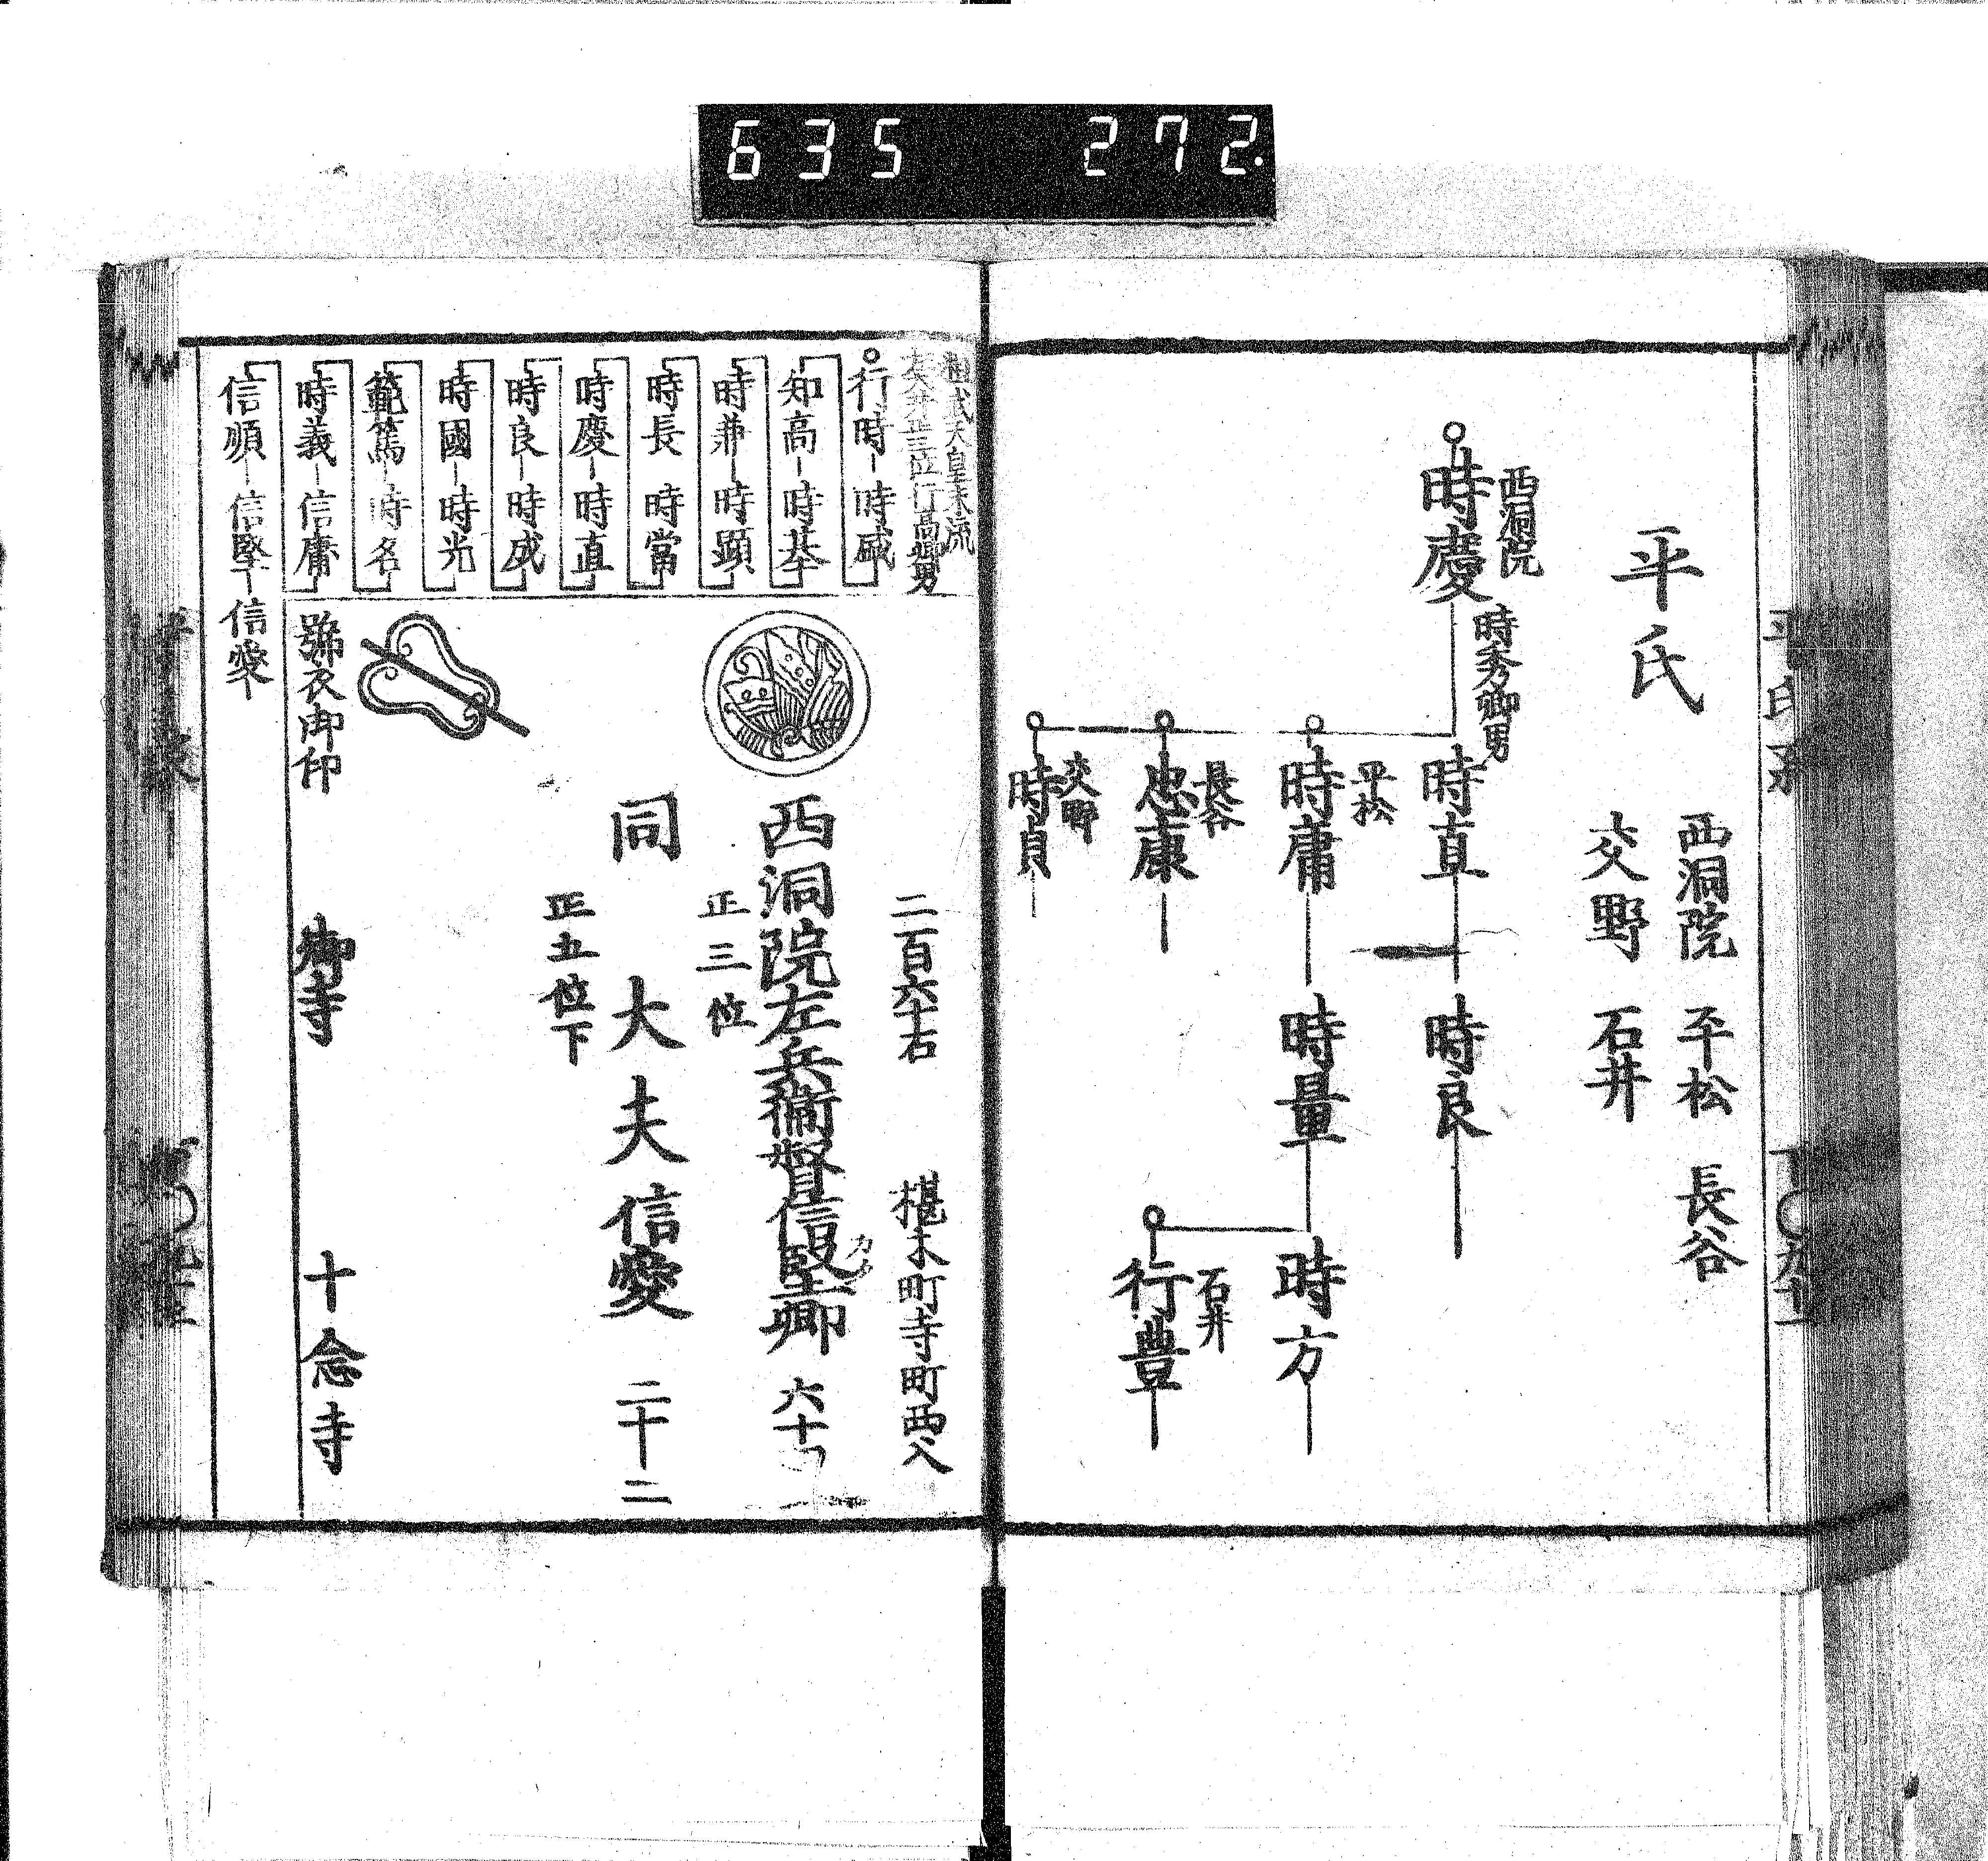 635 272
平氏
西洞院 平松 長谷
交野 石井
西洞院
時慶
時秀卿男
時直
時良
平松
時庸
時量
時方
石井
行豊
長谷
忠康
交野
時貞
桓武天皇末流
行高卿男
行時 時盛
知高 時基
時兼 時顕
時長 時當
時慶 時直
時良 時成
時國 時光
範篤 時名
時義 信庸
信順 信堅 信愛
二百六十石
椹木町寺町西入
西洞院左兵衛督信堅卿 六十
カタ
正三位
同 大夫信愛 二十二
正五位下
御寺 十念寺